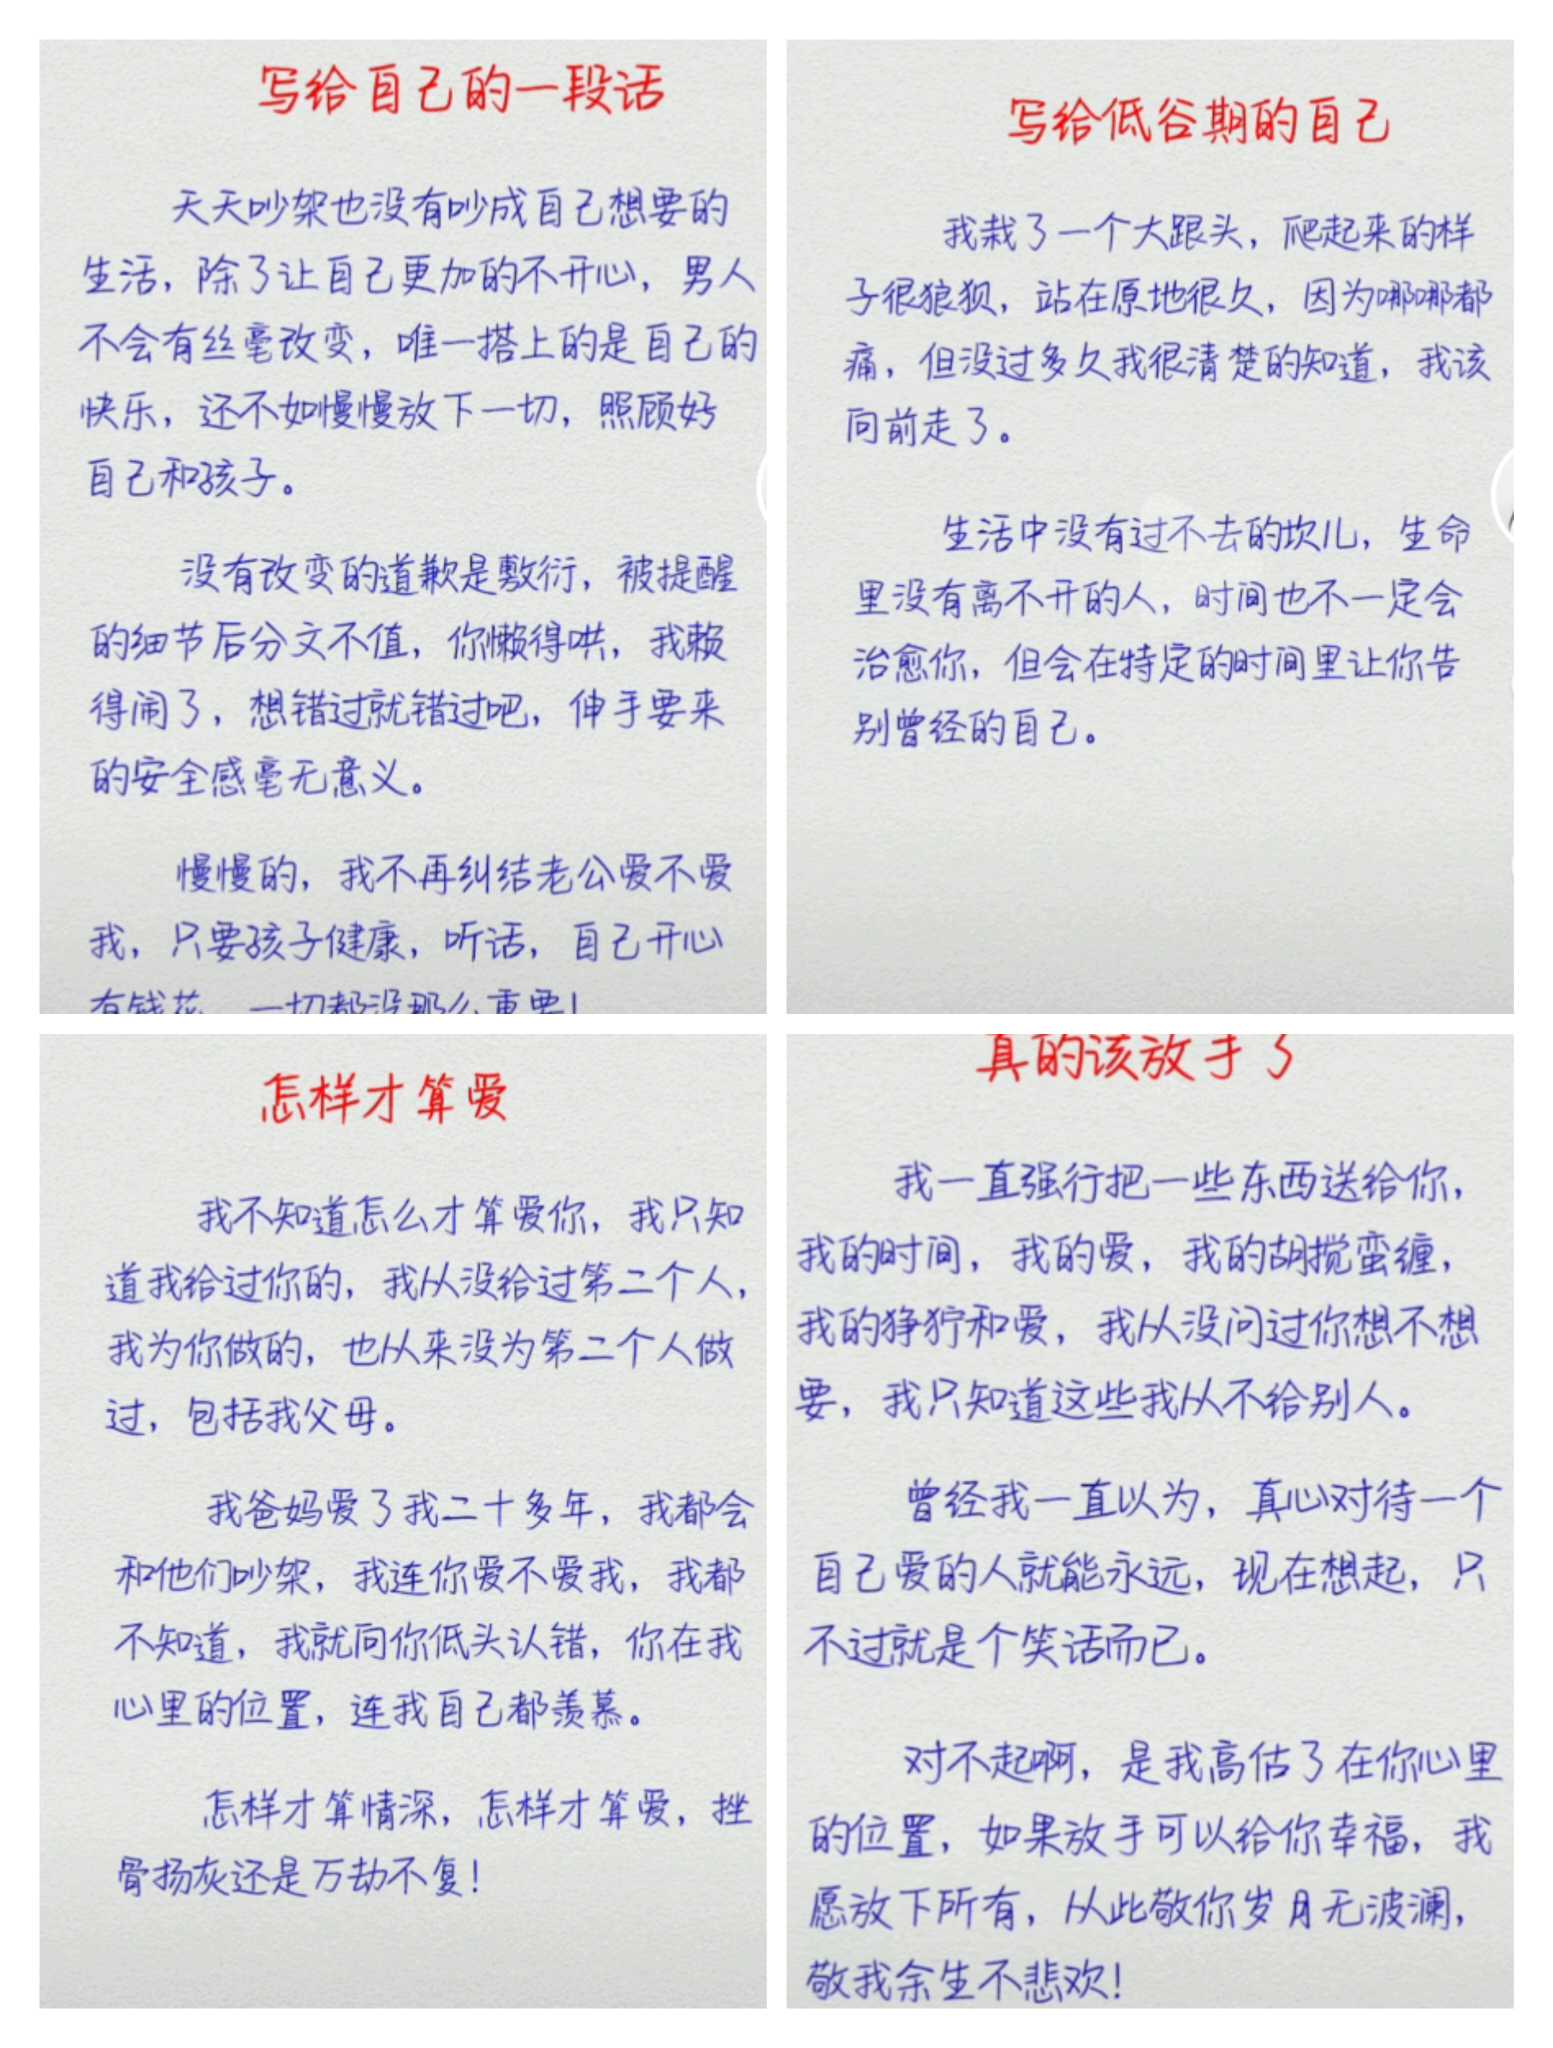 写给自己的一段话
天天吵架也没有吵成自己想要的
生活，除了让自己更加的不开心，男人
不会有丝毫改变，唯一搭上的是自己的
快乐，还不如慢慢放下一切，照顾好
自己和孩子。
没有改变的道歉是敷衍，被提醒
的细节后分文不值，你懒得哄，我赖
得闹了，想错过就错过吧，伸手要来
的安全感毫无意义。
慢慢的，我不再纠结老公爱不爱
我，只要孩子健康，听话，自己开心
有钱花，一切都没那么重要！
写给低谷期的自己
我栽了一个大跟头，爬起来的样
子很狼狈，站在原地很久，因为哪哪都
痛，但没过多久我很清楚的知道，我该
向前走了。
生活中没有过不去的坎儿，生命
里没有离不开的人，时间也不一定会
治愈你，但会在特定的时间里让你告
别曾经的自己。
怎样才算爱
我不知道怎么才算爱你，我只知
道我给过你的，我从没给过第二个人，
我为你做的，也从来没为第二个人做
过，包括我父母。
我爸妈爱了我二十多年，我都会
和他们吵架，我连你爱不爱我，我都
不知道，我就向你低头认错，你在我
心里的位置，连我自己都羡慕。
怎样才算情深，怎样才算爱，挫
骨扬灰还是万劫不复！
真的该放手了
我一直强行把一些东西送给你，
我的时间，我的爱，我的胡搅蛮缠，
我的狰狞和爱，我从没问过你想不想
要，我只知道这些我从不给别人。
曾经我一直以为，真心对待一个
自己爱的人就能永远，现在想起，只
不过就是个笑话而已。
对不起啊，是我高估了在你心里
的位置，如果放手可以给你幸福，我
愿放下所有，从此敬你岁月无波澜，
敬我余生不悲欢！